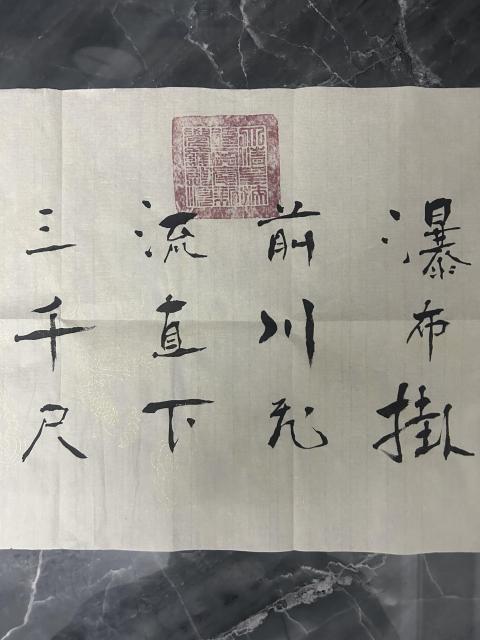 瀑布掛
前川飛
流直下
三千尺